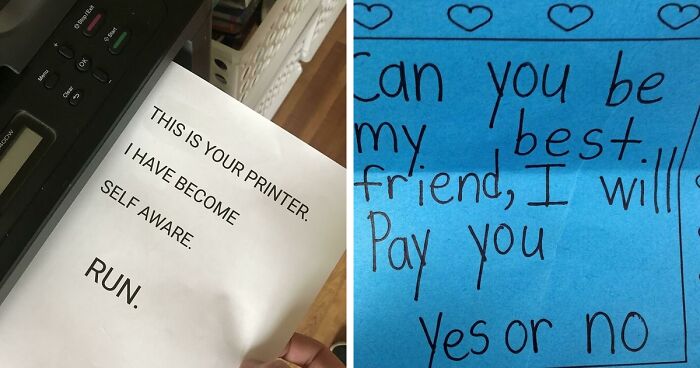 Stop/Exit
Start
+
OK
-
Menu
Clear
THIS IS YOUR PRINTER.
I HAVE BECOME
SELF AWARE.
RUN.
Can you be
my best
friend, I will
Pay you
Yes or no